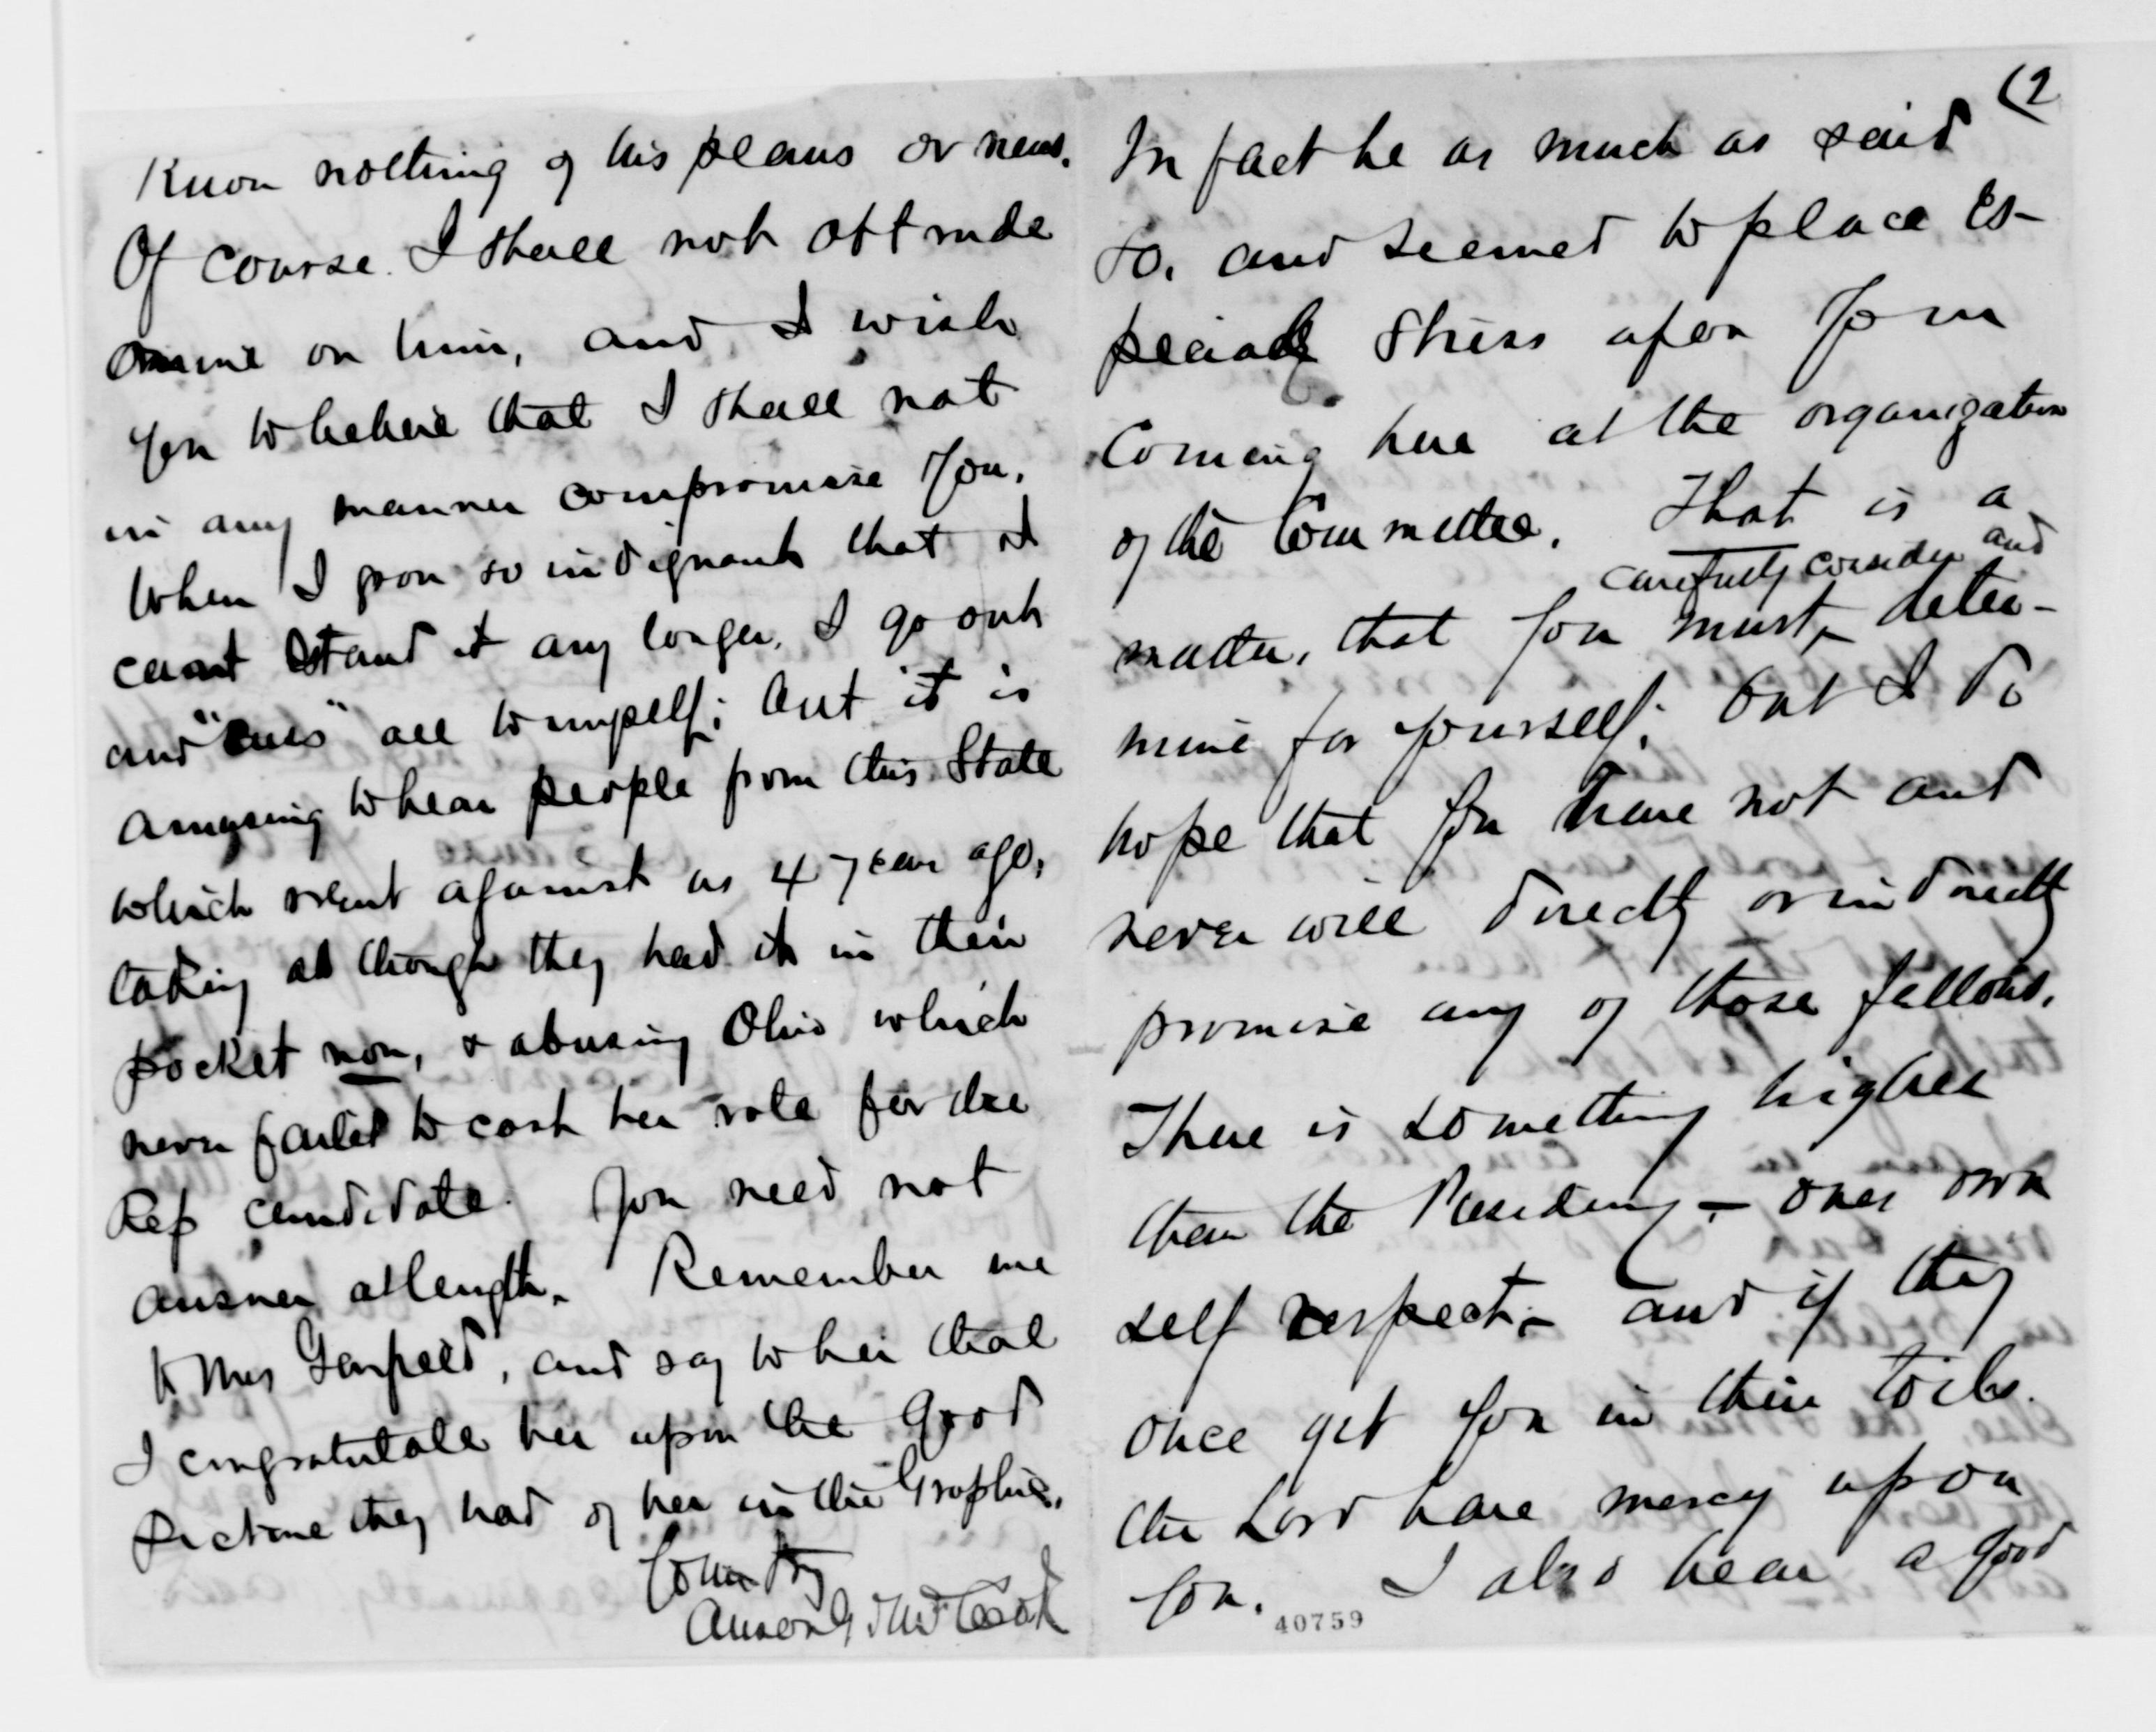 Know nothing of his plans or news.
Of course I shall not obtrude
on him, and I wish
you to believe that I shall not
in any manner compromise you.
When I grow so indignant that I
cannt stand it any longer, I go out
and "cuss" all to myself; but it is
amusing to hear people from this State
which went against us 4 year ago,
talking as though they had it in their
pocket now, & abusing Ohio which
never failed to cast her vote for the
Rep candidate. You need not
answer at length. Remember me
to Mrs Garfield, and say to her that
I congratulate her upon the good
picture they had of her in the Graphic.
Yours Try
Anson G McCook
(2
In fact he as much as said
so, and seemed to place es-
pecial stress upon your
coming here at the organization
of the Committee. That is a
carefully consider and
matter, that you must, deter-
mine for yourself; but I do
hope that you have not and
never will directly or indirectly
promise any of those fellows.
There is something higher
than the Presidency - ones own
self respect - and if they
once get you in their toils
the Lord have mercy upon
you. I also hear a good
40759